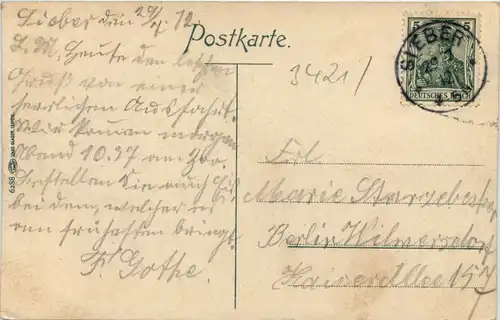 Sieber den 29/7. 12.
Postkarte.
L. M. Heute den letzten
Gruß von einer
herrlichen Ausfahrt.
Wir kommen morgen
Abend 10.37 am Zoo.
bestellen Sie auch
bei dem, welcher es
am frühesten bringt.
F. Gothe.
3421/
5 5
SIEBER
DEUTSCHES REICH
Frl
Marie
Berlin Wilmersdorf
Kaiserallee 157
6238